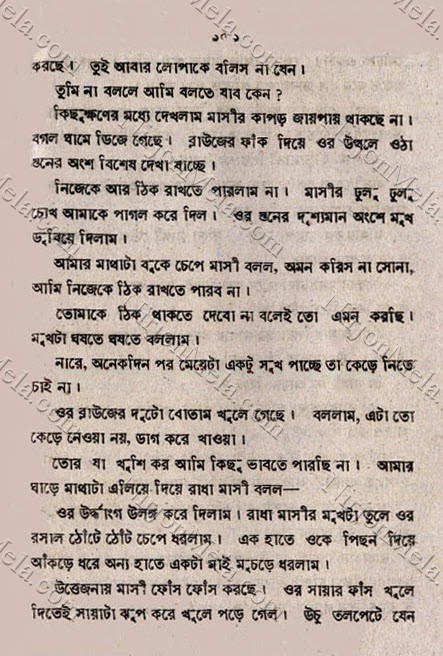 ১৫১
করছে। তুই আবার লোপাকে বলিস না যেন।
তুমি না বললে আমি বলতে যাব কেন?
কিছুক্ষণের মধ্যে দেখলাম মাসীর কাপড় জায়পায় থাকছে না।
বগল ঘামে ভিজে গেছে। ব্লাউজের ফাঁক দিয়ে ওর উথলে ওঠা
স্তনের অংশ বিশেষ দেখা যাচ্ছে।
নিজেকে আর ঠিক রাখতে পারলাম না। মাসীর ঢুলু ঢুলু
চোখ আমাকে পাগল করে দিল। ওর স্তনের দৃশ্যমান অংশে মুখ
ডুবিয়ে দিলাম।
আমার মাথাটা বুকে চেপে মাসী বলল, অমন করিস না সোনা,
আমি নিজেকে ঠিক রাখতে পারব না।
তোমাকে ঠিক থাকতে দেবো না বলেই তো এমন করছি।
মুখটা ঘষতে ঘষতে বললাম।
নারে, অনেকদিন পর মেয়েটা একটু সুখ পাচ্ছে তা কেড়ে নিতে
চাই না।
ওর ব্লাউজের দুটো বোতাম খুলে গেছে। বললাম, এটা তো
কেড়ে নেওয়া নয়, ভাগ করে খাওয়া।
তোর যা খুশি কর আমি কিছু ভাবতে পারছি না। আমার
ঘাড়ে মাথাটা এলিয়ে দিয়ে রাধা মাসী বলল—
ওর উর্দ্ধাংগ উলঙ্গ করে দিলাম। রাধা মাসীর মুখটা তুলে ওর
রসাল ঠোঁটে ঠোঁট চেপে ধরলাম। এক হাতে ওকে পিছন দিয়ে
আঁকড়ে ধরে অন্য হাতে একটা মাই মুচড়ে ধরলাম।
উত্তেজনায় মাসী ফোঁস ফোঁস করছে। ওর সায়ার ফাঁস খুলে
দিতেই সায়াটা ঝুপ করে খুলে পড়ে গেল। উঁচু তলপেটে যেন